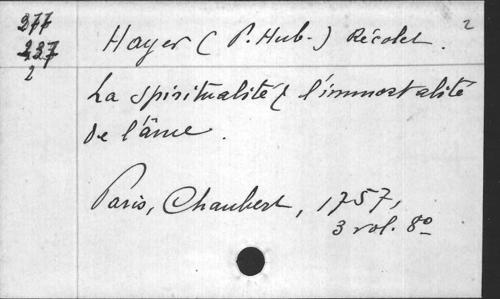 277
237
2
Hayer (P. Hub.) Récolet.
2
La spiritualité & l'immortalité
de l'âme.
Paris, Chaubert, 1757,
3 vol. 8º